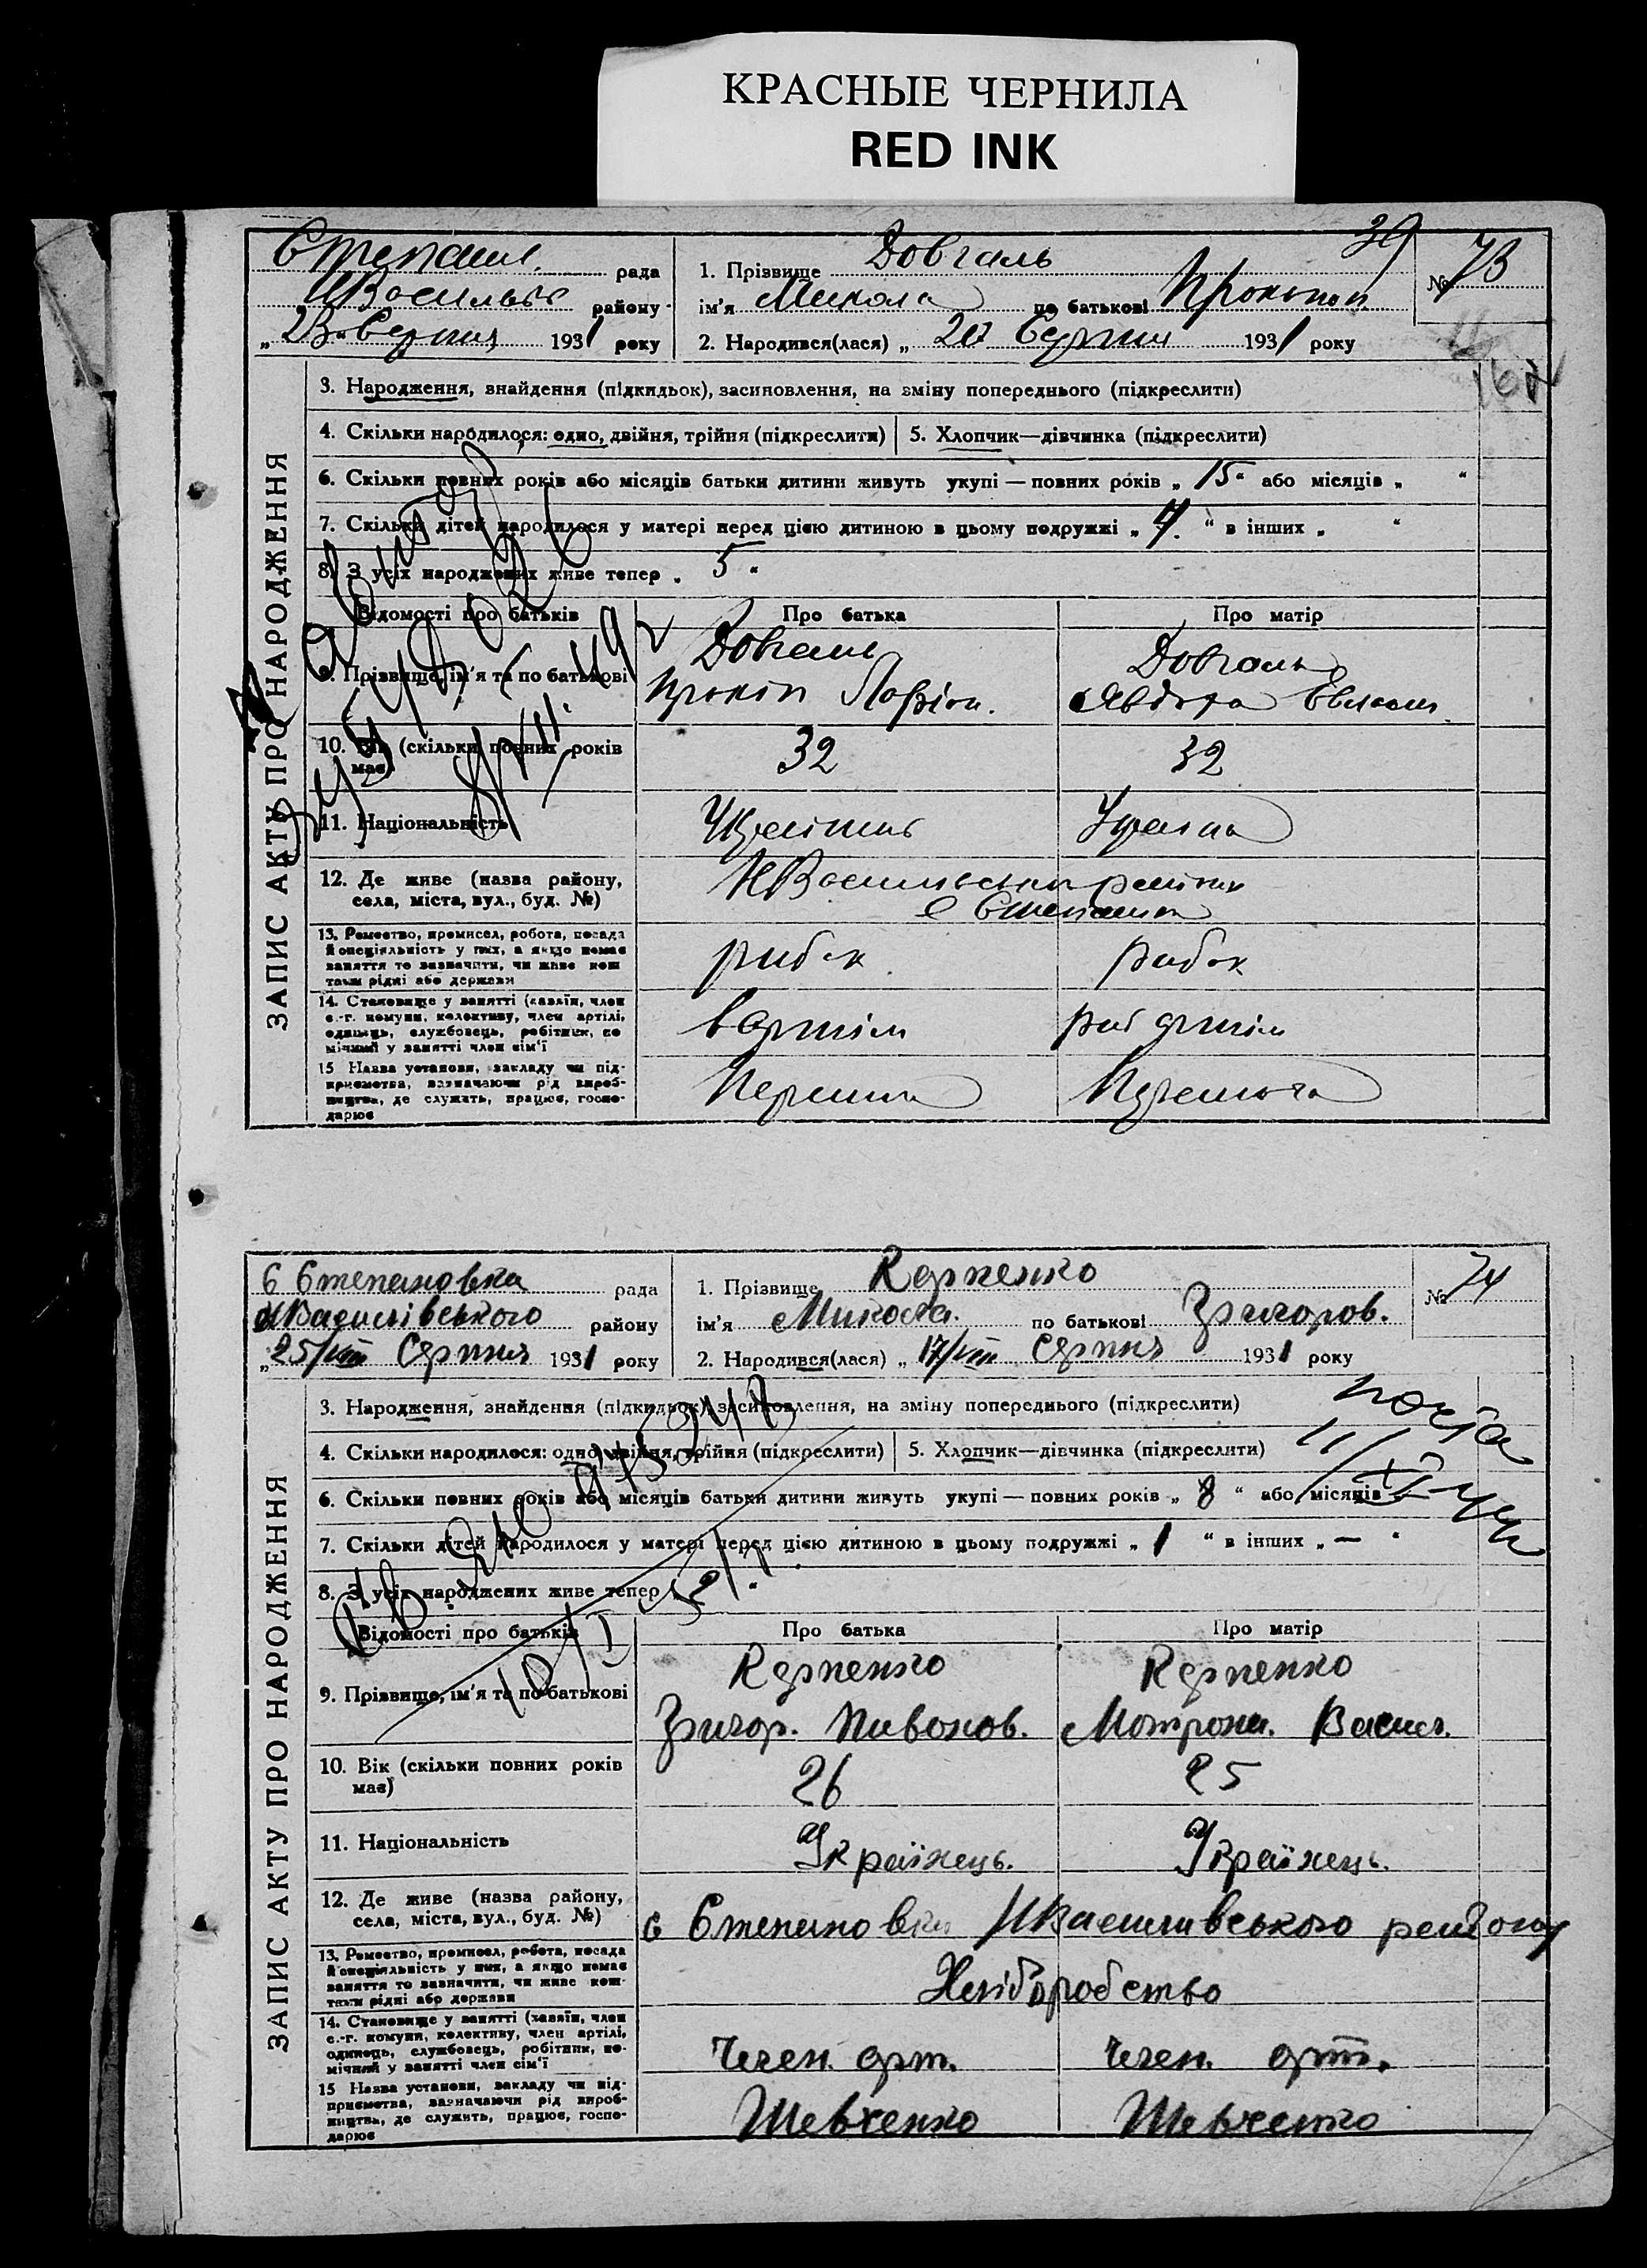 КРАСНЫЕ ЧЕРНИЛА
RED INK
39
Степан. рада
НВасильв району
„23" Серпня 1931 року
1. Прізвище Довгаль
ім'я Микола по батькові Прокопов
2. Народився(лася) „ 20 Серпня 1931 року
№ 73
ЗАПИС АКТУ ПРО НАРОДЖЕННЯ
3. Народження, знайдення (підкидьок), засиновлення, на зміну попереднього (підкреслити)
4. Скільки народилося: одно, двійня, трійня (підкреслити)
5. Хлопчик—дівчинка (підкреслити)
6. Скільки повних років або місяців батьки дитини живуть укупі — повних років „ 15 " або місяців „ "
7. Скільки дітей народилося у матері перед цією дитиною в цьому подружжі „ 4. " в інших „ "
8. З усіх народжених живе тепер „ 5 "
Відомості про батьків
Про батька
Про матір
9. Прізвище, ім'я та по батькові
Довгаль
Прокіп Ларіон.
Довгаль
Явдоха
10. Вік (скільки повних років має)
32
32
11. Національність
12. Де живе (назва району, села, міста, вул., буд. №)
НВасильвський район
с Степанівка
13. Ремество, промисел, робота, посада й спеціяльність у них, а якщо немає заняття то зазначити, чи живе коштами рідні або держави
рибак
рибак
14. Становище у занятті (хазяїн, член с.-г. комуни, колективу, член артілі, одинець, службовець, робітник, помічний у занятті член сім'ї
в артілі
риб артіли
15 Назва установи, закладу чи підприємства, зазначаючи рід виробництва, де служить, працює, господарює
с Степановка рада
НВасилівського району
„25/VIII Серпня 1931 року
1. Прізвище Карпенко
ім'я Микола. по батькові Григоров.
2. Народився(лася) „ 17/VIII Серпня 1931 року
№ 74
ЗАПИС АКТУ ПРО НАРОДЖЕННЯ
3. Народження, знайдення (підкидьок), засиновлення, на зміну попереднього (підкреслити)
4. Скільки народилося: одно, двійня, трійня (підкреслити)
5. Хлопчик—дівчинка (підкреслити)
6. Скільки повних років або місяців батьки дитини живуть укупі — повних років „ 8 " або місяців
7. Скільки дітей народилося у матері перед цією дитиною в цьому подружжі „ 1 " в інших „ — "
8. З усіх народжених живе тепер „ 2 "
Відомості про батьків
Про батька
Про матір
9. Прізвище, ім'я та по батькові
Карпенко
Григор. Пивонов.
Карпенко
Мотрона. Васил.
10. Вік (скільки повних років має)
26
25
11. Національність
Українець.
Українець.
12. Де живе (назва району, села, міста, вул., буд. №)
с Степановка НВасилівського району
13. Ремество, промисел, робота, посада й спеціяльність у них, а якщо немає заняття то зазначити, чи живе коштами рідні або держави
Хліборобство
14. Становище у занятті (хазяїн, член с.-г. комуни, колективу, член артілі, одинець, службовець, робітник, помічний у занятті член сім'ї
Член. арт.
Член. арт.
15 Назва установи, закладу чи підприємства, зазначаючи рід виробництва, де служить, працює, господарює
Шевченко
Шевченко